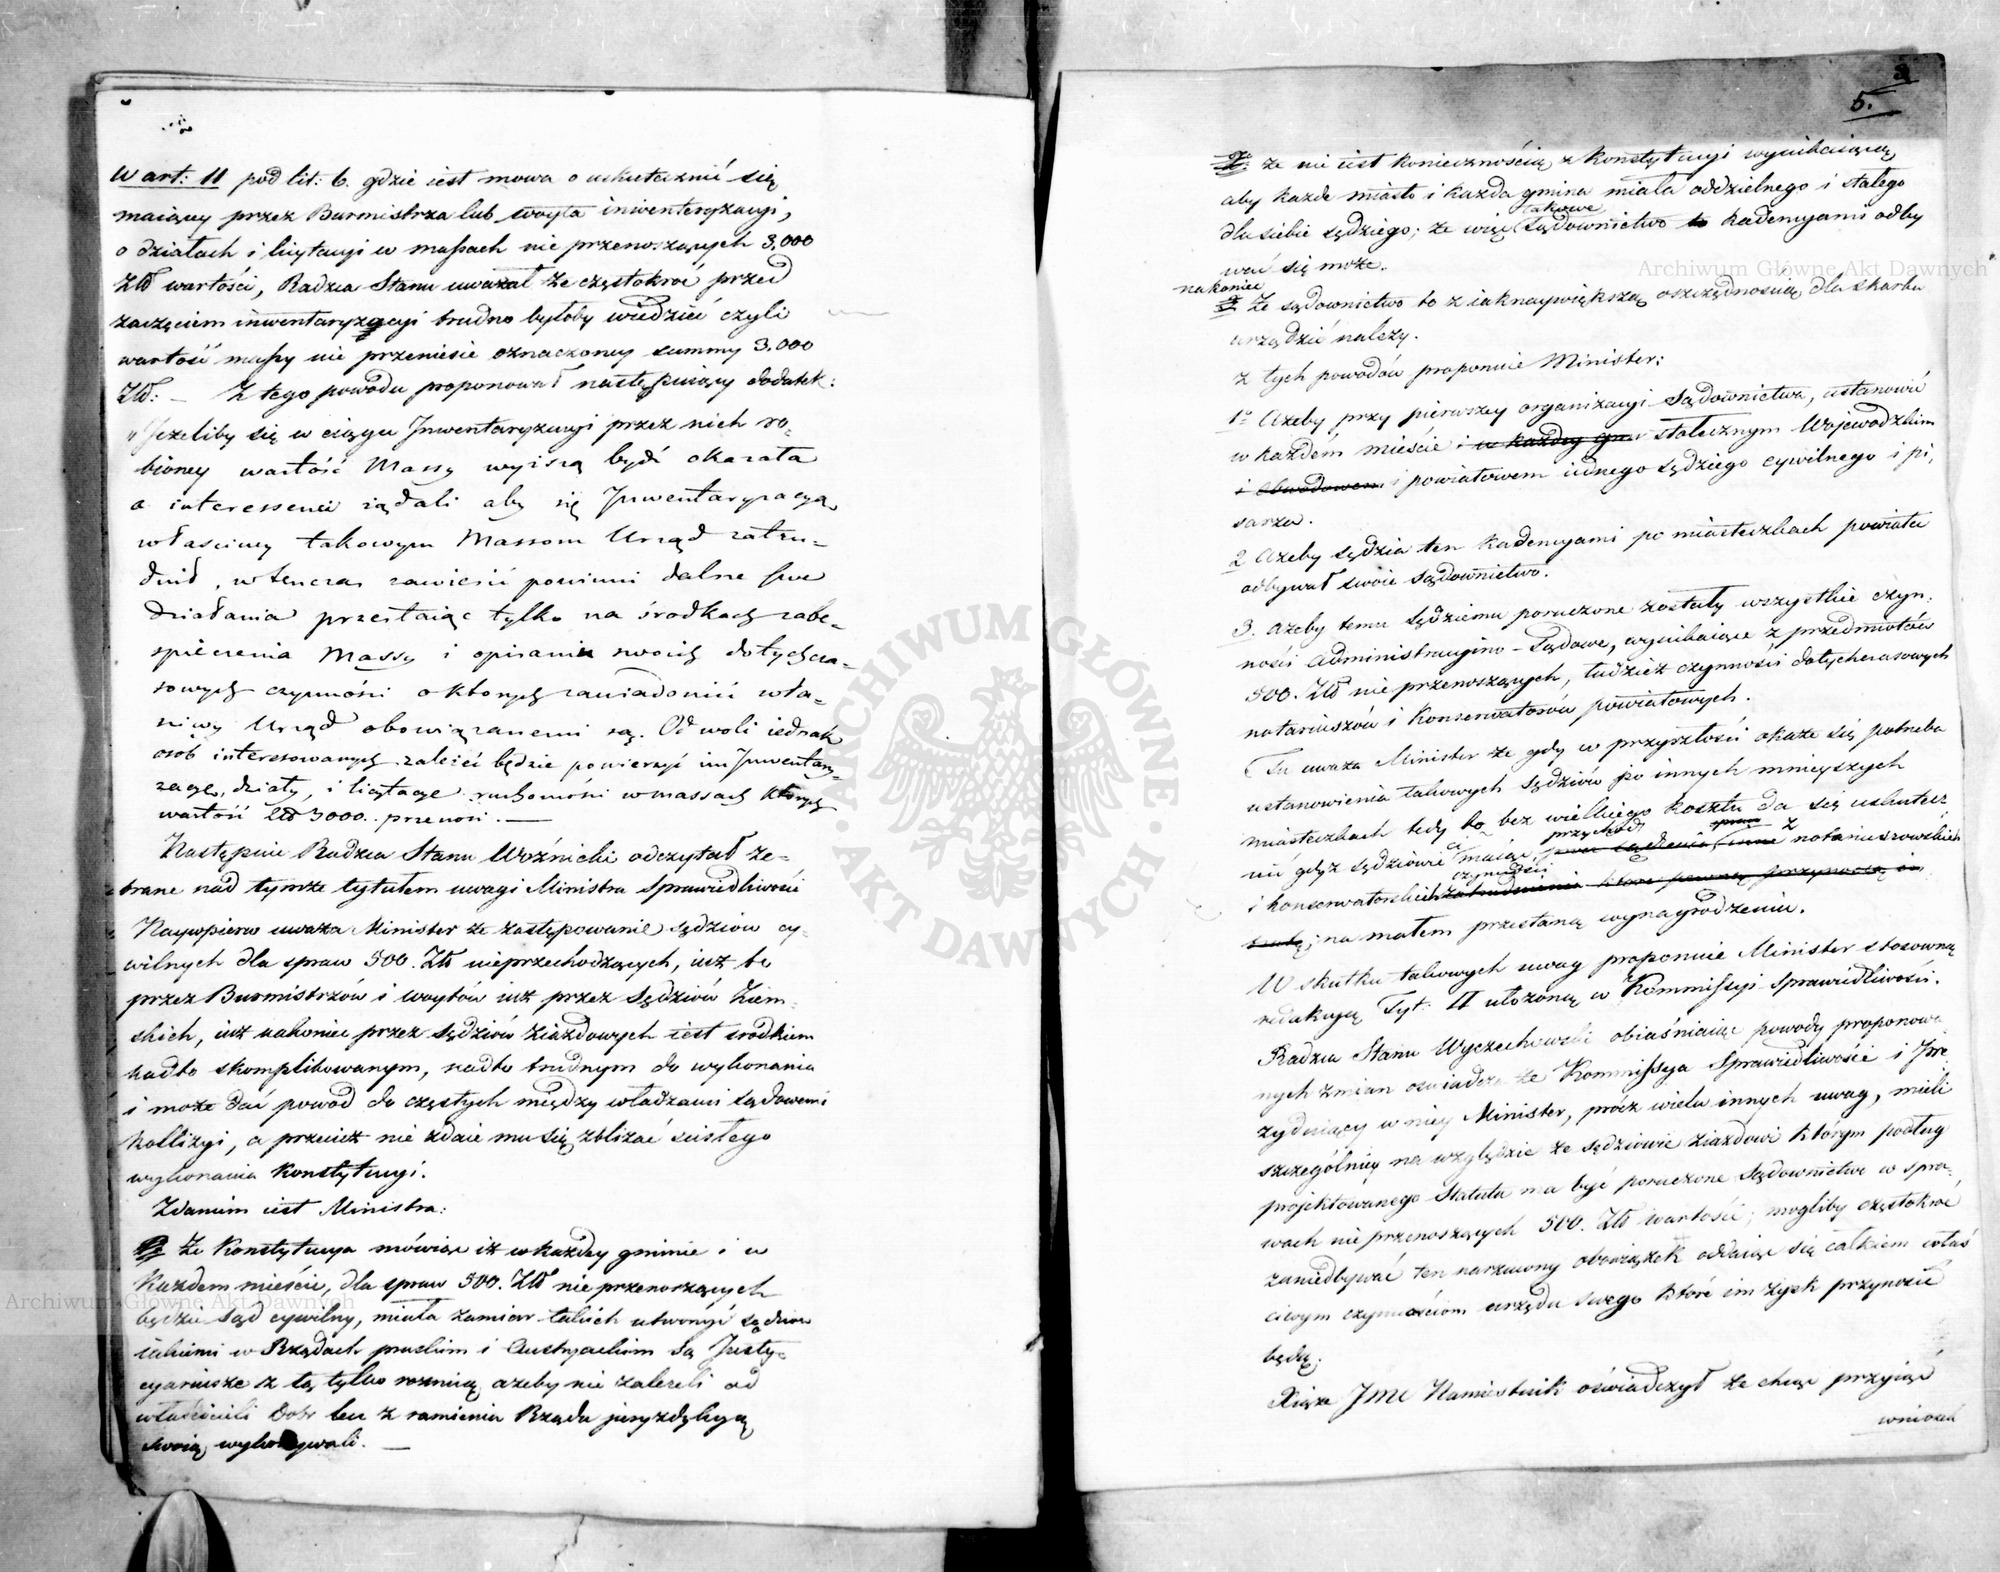 W art: 11 pod lit: b. gdzie iest mowa o uskutecznić się
maiącey przez Burmistrza lub woyta inwenteryzacyi,
o działach i licytacyi w massach nie przenoszących 3,000
Złł wartości, Radzca Stanu uważał że częstokroć przed
zaczęciem inwentaryzacyi trudno byłoby wiedzieć czyli
wartość massy nie przeniesie oznaczoney summy 3,000
Złł: – Z tego powodu proponował następuiący dodatek:
„Jeżeliby się w ciągu Inwentaryzacyi przez nich ro-
bioney wartość Massy wyższą bydź okazała
a interessenci żądali aby się Inwentaryzacyą
właściwy takowym Massom Urząd zatru-
dnił, wtenczas zawiesić powinni dalsze swe
działania przestaiąc tylko na środkach zabe-
spieczenia Massy i opisaniu swoich dotychcza-
sowych czynności o których zawiadomić wła-
ściwy Urząd obowiązanemi są. Od woli iednak
osob interesowanych zależeć będzie powierzyć im Inwentary-
zacye, działy, i licytacye ruchomości w massach których
wartość Złł 3000. przenosi. —
Następnie Radzca Stanu Woźnicki odczytał ze-
brane nad tymże tytułem uwagi Ministra Sprawiedliwości
Naypierw uważa Minister że zastępowanie sędziów cy-
wilnych dla spraw 500. Złł nieprzechodzących, iuż to
przez Burmistrzów i woytów iuż przez Sędziów Ziem-
skich, iuż nakoniec przez sędziów Ziazdowych iest srodkiem
nadto skomplikowanym, nadto trudnym do wykonania
i może dać powod do częstych między władzami sądowemi
kollizyi, a przecież nie zdaie mu się zbliżać scisłego
wykonania Konstytucyi.
Zdaniem iest Ministra:
Że Konstytucya mówiąc iż w każdey gminie i w
Każdem mieście, dla spraw 500. Złł nie przenoszących
będzie Sąd cywilny, miała zamiar takich utworzyć sędziów
iakiemi w Rządach pruskim i Austryackim są Justy-
cyariusze z tą tylko roznicą ażeby nie zależeli od
właścicieli Dobr lecz z ramienia Rządu juryzdykcyą
swoią wykonywali. —
5.
że nie iest koniecznością z Konstytucyi wynikaiącą,
aby każde miasto i każda gmina miała oddzielnego i stałego
takowe
dla siebie sędziego; że więc Sądownictwo to kadencyami odby
wać się może.
nakoniec
Że sądownictwo to z iaknaywiększą oszczędnością dla skarbu
urządzić należy.
Z tych powodów proponuie Minister:
1° Ażeby przy pierwszey organizacyi Sądownictwa, ustanowić
w każdem mieście i w każdey gm stołecznym Wojewodzkim
i Obwodowem i powiatowem iednego sędziego cywilnego i pi,
sarza.
2 Ażeby sędzia ten kadencyami po miasteczkach powiatu
odbywał swoie sądownictwo.
3. Ażeby temu Sędziemu poruczone zostały wszystkie czyn-
ności Administracyino-Sądowe, wynikaiące z przedmiotów
500. Złł nie przenoszących, tudzież czynności dotychczasowych
notariuszów i Konserwatorów powiatowych.
Tu uważa Minister że gdy w przyszłości okaże się potrzeba
ustanowienia takowych Sędziów po innych mnieyszych
miasteczkach tedy to bez wielkiego kosztu da się uskutecz
przychod z
nić gdyż sędziowie ci maiąc notariuszowskich
czynności
i konserwatorskich zatrudnienia które pewną przynoszą im
na małem przestaną wynagrodzeniu.
W skutku takowych uwag proponuie Minister stosowną
redakcyą Tyt. II ułożoną w Kommissyi Sprawiedliwości.
Radzca Stanu Wyczechowski obiaśniaiąc powody proponowa
nych zmian oświadcza że Kommissya Sprawiedliwości i Pre
zyduiący w niey Minister, prócz wielu innych uwag, mieli
szczególniey na względzie że sędziowie ziazdowi którym podług
projektowanego Statutu ma być poruczone Sądownictwo w spra-
wach nie przenoszących 500. Złł wartości; mogliby częstokroć
zaniedbywać ten narzucony obowiązek oddaiąc się całkiem właś
ciwym czynnościom urzędu swego które im zysk przynosić
będą.
Xiąże JMC Namiestnik oświadczył że chcąc przyiąć
wniosek
Archiwum Główne Akt Dawnych
Archiwum Główne Akt Dawnych
ARCHIWUM GŁÓWNE AKT DAWNYCH